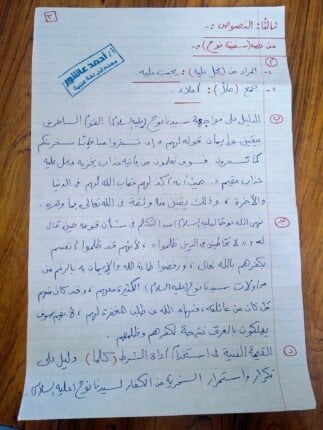 ٣
ثالثًا: النصوص :-
من خلال (سفينة نوح) :-
أ. أحمد عاشور
معلم لغة عربية
(أ)
١- المراد من (يحل عليه) : يجب عليه.
٢- جمع (ملأ) : أملاء.
(ب) الدليل على مواجهة سيدنا نوح (عليه السلام) القوم الساخرين
بيقين وإيمان قوله لهم " إن تسخروا منا فإنا نسخر منكم
كما تسخرون . فسوف تعلمون من يأتيه عذاب يخزيه ويحل عليه
عذاب مقيم " حيث أنه أكد لهم عقاب الله لهم في الدنيا
والآخرة ، وذلك بيقين منه وثقة في الله تعالى بما وعده.
(ج) نهى الله نوحًا (عليه السلام) عن التكلم في شأن قومه حين قال
له :- " ولا تخاطبني في الذين ظلموا " ، لأنهم قد ظلموا أنفسهم
بكفرهم بالله تعالى ، ورفضوا طاعة الله والإيمان به بالرغم من
محاولات سيدنا نوح (عليه السلام) الكثيرة معهم ، وقد كان منهم
من كان من عائلته ، فنهاه الله عن طلب المغفرة لهم ، لأنهم سوف
يهلكون بالغرق نتيجة لكفرهم وظلمهم
(د) القيمة الفنية في استخدام أداة الشرط (كلما) : دليل على
تكرار واستمرار السخرية من الكفار لسيدنا نوح (عليه السلام).